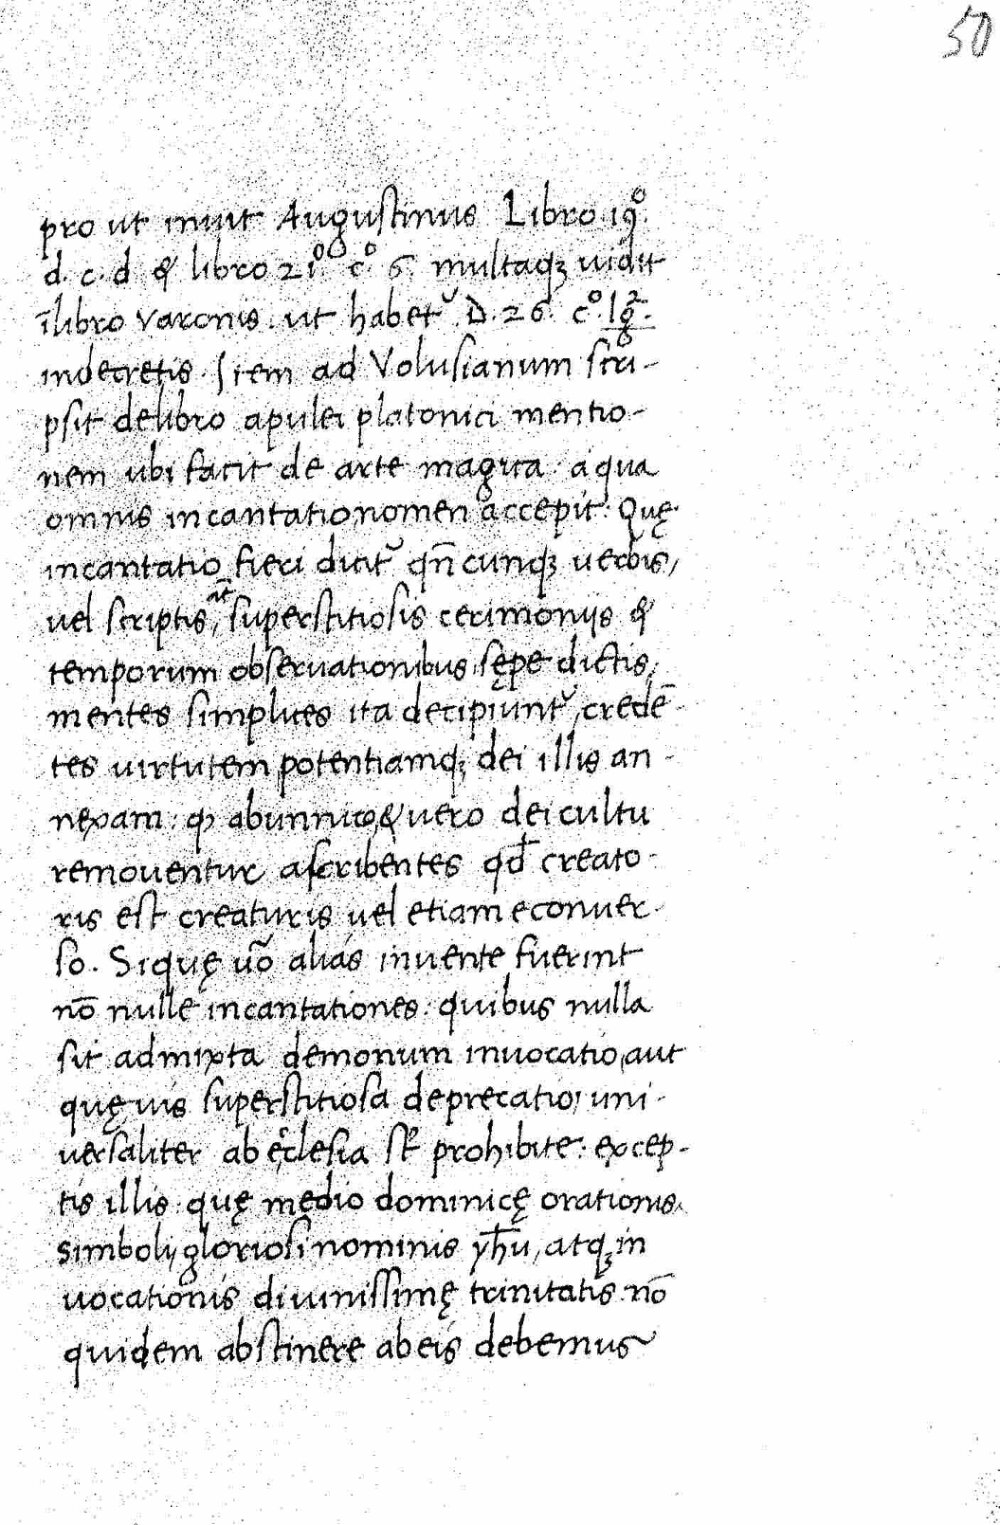 50
pro ut inuit Augustinus Libro 19º.
d. c. d & libro 21º cº 6. multaqꝫ uidit
ĩ libro varonis. ut habet᷑ D. 26. cº.
indecretis. Item ad Volusianum scri-
psit delibro apulei platonici mentio-
nem ubi facit de arte magica. aqua
omnis incantationomen accepit. Quę
incantatio fieri dicit᷑ qñcunqꝫ uerbis,
uel scriptis, aut̃ superstitiosis cerimonijs &
temporum obseruationibus sępe dictis,
mentes simplices ita decipiunt᷑, credē-
tes uirtutem potentiamqꝫ dei illis an-
nexam: qꝫ abunnico, & uero dei cultu
remouentur ascribentes qd̄ creato-
ris est creaturis uel etiam econuer-
so. Siquę uo᷑ alias inuente fuerint
nō nulle incantationes: quibus nulla
sit admixta demonum inuocatio, aut
quęuis superstitiosa deprecatio, uni-
uersaliter ab ęclesia st᷑ prohibite: excep-
tis illis quę medio dominicę orationis,
simboli, gloriosi nominis yħu, atqꝫ in
uocationis diuinissimę trinitatis. nō
quidem abstinere ab eis debemus